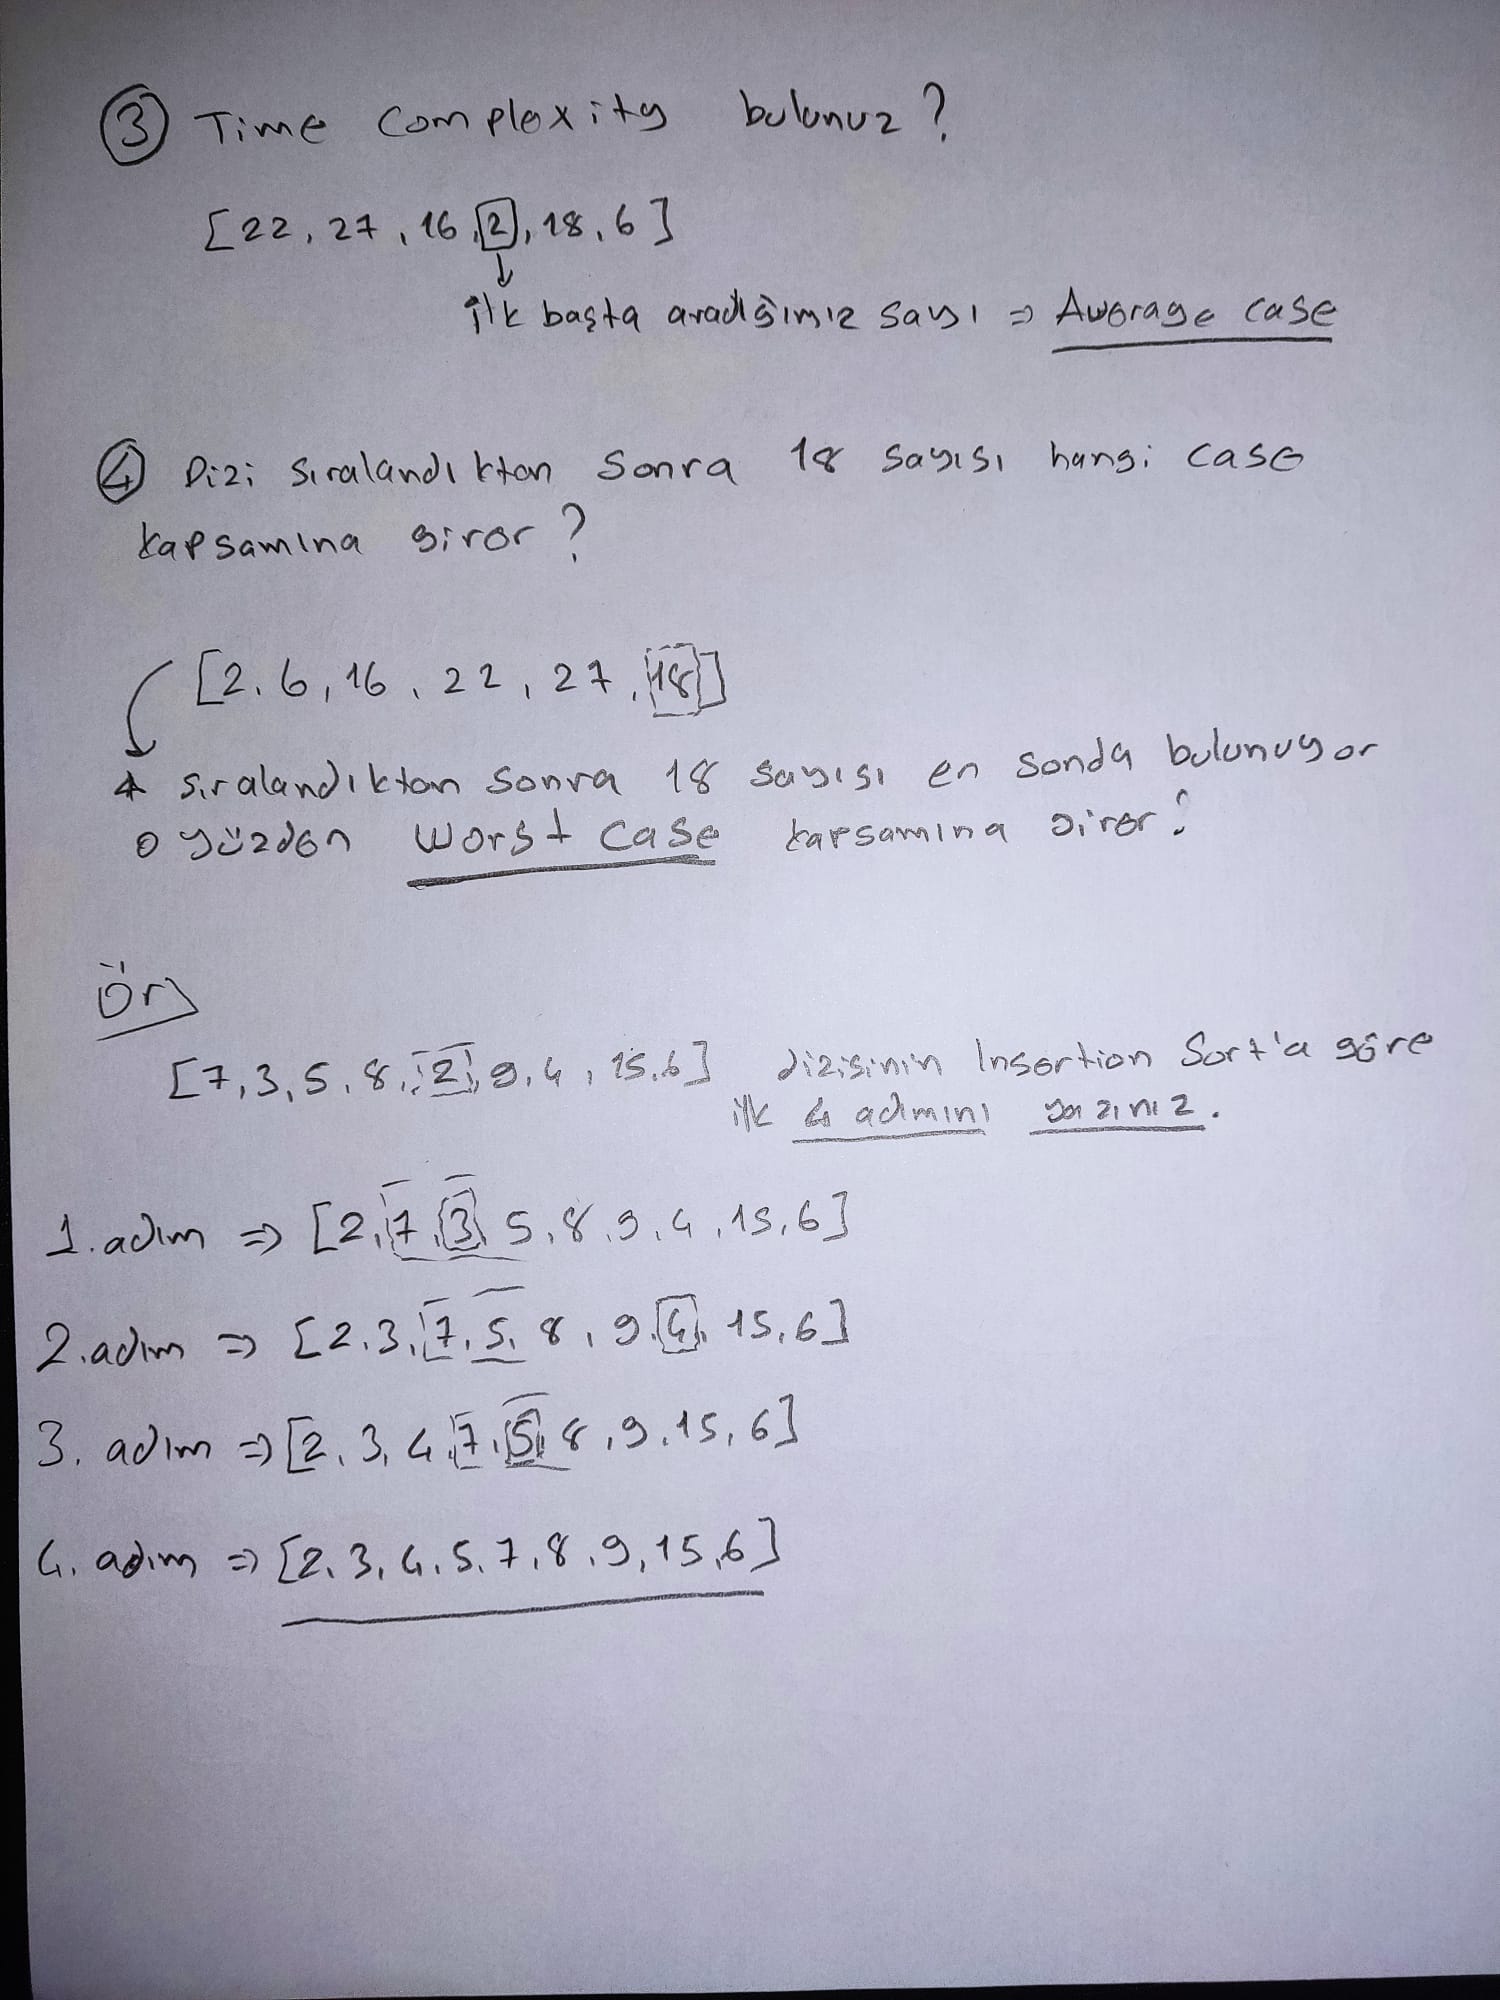 3 Time Complexity bulunuz?
[22, 27, 16, 2, 18, 6]
ilk başta aradığımız sayı => Average case
4 Dizi sıralandıktan sonra 18 sayısı hangi case
kapsamına girer?
[2, 6, 16, 22, 27, 18]
* sıralandıktan sonra 18 sayısı en sonda bulunuyor
o yüzden worst case kapsamına girer.
Örn
[7, 3, 5, 8, 2, 9, 4, 15, 6] dizisinin Insertion Sort'a göre
ilk 4 adımını yazınız.
1. adım => [2, 7, 3, 5, 8, 9, 4, 15, 6]
2. adım => [2, 3, 7, 5, 8, 9, 4, 15, 6]
3. adım => [2, 3, 4, 7, 5, 8, 9, 15, 6]
4. adım => [2, 3, 4, 5, 7, 8, 9, 15, 6]